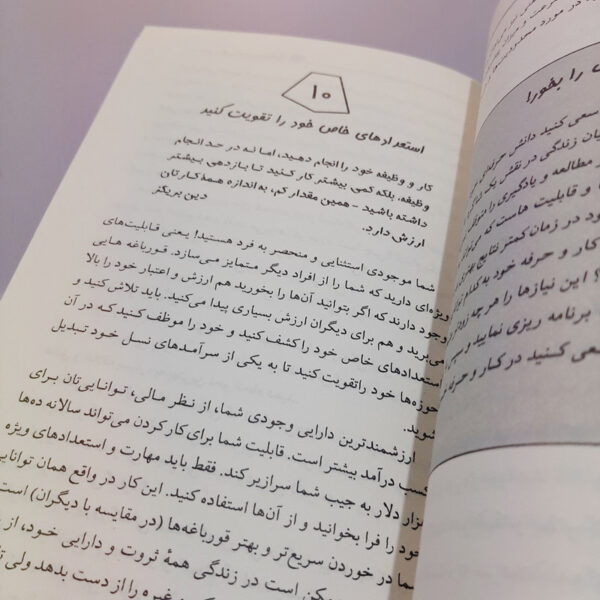 ۱۰
استعدادهای خاص خود را تقویت کنید
کار و وظیفه خود را انجام دهید، اما نه در حد انجام
وظیفه، بلکه کمی بیشتر کار کنید تا بازدهی بیشتر
داشته باشید – همین مقدار کم، به اندازه همهٔ کارتان
ارزش دارد.
دین بریگز
شما موجودی استثنایی و منحصر به فرد هستید! یعنی قابلیت‌های
ویژه‌ای دارید که شما را از افراد دیگر متمایز می‌سازد. قورباغه هایی
وجود دارند که اگر بتوانید آن‌ها را بخورید هم ارزش و اعتبار خود را بالا
می‌برید و هم برای دیگران ارزش بسیاری پیدا می‌کنید. باید تلاش کنید و
استعدادهای خاص خود را کشف کنید و خود را موظف کنید که در آن
حوزه‌ها خود راتقویت کنید تا به یکی از سرآمدهای نسل خود تبدیل
شوید.
ارزشمندترین دارایی وجودی شما، از نظر مالی، توانایی‌تان برای
کسب درآمد بیشتر است. قابلیت شما برای کار کردن می‌تواند سالانه ده‌ها
هزار دلار به جیب شما سرازیر کند. فقط باید مهارت و استعدادهای ویژه
خود را فرا بخوانید و از آن‌ها استفاده کنید. این کار در واقع همان توانایی
شما در خوردن سریع‌تر و بهتر قورباغه‌ها (در مقایسه با دیگران) است
ممکن است در زندگی همهٔ ثروت و دارایی خود، از
غیره را از دست بدهد ولی
را بخور!
سعی کنید دانش حرفه‌ای
زندگی در نقش یک
مطالعه و یادگیری را
و قابلیت هاست که
در زمان کمتر نتایج
کار و حرفه خود به کدام
؟ این نیازها را هرچه
برنامه ریزی نمایید و سپس
سعی کنید در کار و